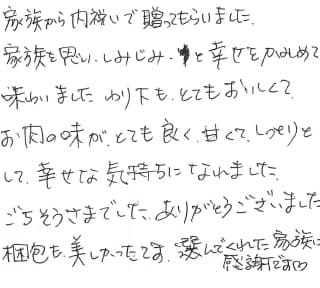 家族から内祝いで贈ってもらいました。
家族を思い、しみじみ・と幸せをかみしめて
味わいました わり下も、とてもおいしくて、
お肉の味が、とても良く、甘くて、しっとりと
して、幸せな気持ちになれました。
ごちそうさまでした。ありがとうございました
梱包も、美しかったです。選んでくれた家族に
感謝です